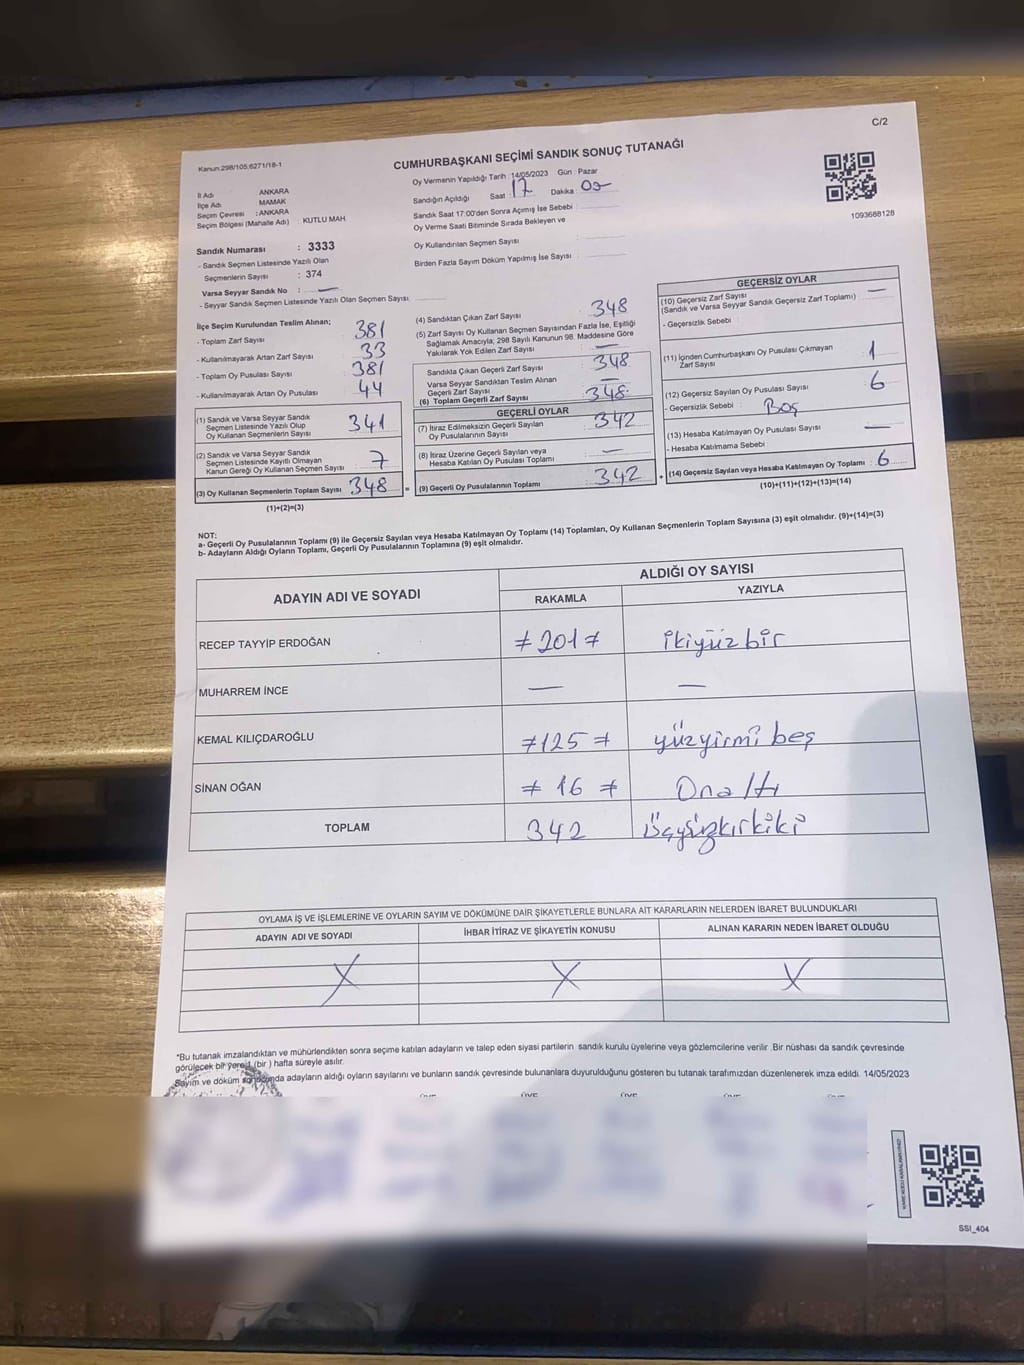 C/2
Kanun.298/105;6271/18-1
CUMHURBAŞKANI SEÇİMİ SANDIK SONUÇ TUTANAĞI
İl Adı ANKARA
İlçe Adı MAMAK
Seçim Çevresi : ANKARA
Seçim Bölgesi (Mahalle Adı) KUTLU MAH.
Sandık Numarası : 3333
- Sandık Seçmen Listesinde Yazılı Olan
Seçmenlerin Sayısı : 374
Varsa Seyyar Sandık No : —
- Seyyar Sandık Seçmen Listesinde Yazılı Olan Seçmen Sayısı
Oy Vermenin Yapıldığı Tarih :14/05/2023 Gün : Pazar
Sandığın Açıldığı Saat : 17 Dakika :
Sandık Saat 17:00'den Sonra Açımış İse Sebebi :
Oy Verme Saati Bitiminde Sırada Bekleyen ve
Oy Kullandırılan Seçmen Sayısı :
Birden Fazla Sayım Döküm Yapılmış İse Sayısı :
1093688128
İlçe Seçim Kurulundan Teslim Alınan;
- Toplam Zarf Sayısı 381
- Kullanılmayarak Artan Zarf Sayısı 33
- Toplam Oy Pusulası Sayısı 381
- Kullanılmayarak Artan Oy Pusulası 44
(1) Sandık ve Varsa Seyyar Sandık
Seçmen Listesinde Yazılı Olup
Oy Kullanan Seçmenlerin Sayısı 341
(2) Sandık ve Varsa Seyyar Sandık
Seçmen Listesinde Kayıtlı Olmayan
Kanun Gereği Oy Kullanan Seçmen Sayısı 7
(3) Oy Kullanan Seçmenlerin Toplam Sayısı 348
(1)+(2)=(3)
(4) Sandıktan Çıkan Zarf Sayısı 348
(5) Zarf Sayısı Oy Kullanan Seçmen Sayısından Fazla İse, Eşitliği
Sağlamak Amacıyla; 298 Sayılı Kanunun 98. Maddesine Göre
Yakılarak Yok Edilen Zarf Sayısı : —
Sandıkta Çıkan Geçerli Zarf Sayısı 348
Varsa Seyyar Sandıktan Teslim Alınan
Geçerli Zarf Sayısı : —
(6) Toplam Geçerli Zarf Sayısı : 348
GEÇERLİ OYLAR
(7) İtiraz Edilmeksizin Geçerli Sayılan
Oy Pusulalarının Sayısı 342
(8) İtiraz Üzerine Geçerli Sayılan veya
Hesaba Katılan Oy Pusulası Toplamı —
= (9) Geçerli Oy Pusulalarının Toplamı 342
GEÇERSİZ OYLAR
(10) Geçersiz Zarf Sayısı —
(Sandık ve Varsa Seyyar Sandık Geçersiz Zarf Toplamı)
- Geçersizlik Sebebi :
(11) İçinden Cumhurbaşkanı Oy Pusulası Çıkmayan
Zarf Sayısı 1
(12) Geçersiz Sayılan Oy Pusulası Sayısı 6
- Geçersizlik Sebebi : Boş
(13) Hesaba Katılmayan Oy Pusulası Sayısı —
- Hesaba Katılmama Sebebi :
+ (14) Geçersiz Sayılan veya Hesaba Katılmayan Oy Toplamı : 6
(10)+(11)+(12)+(13)=(14)
NOT:
a- Geçerli Oy Pusulalarının Toplamı (9) ile Geçersiz Sayılan veya Hesaba Katılmayan Oy Toplamı (14) Toplamları, Oy Kullanan Seçmenlerin Toplam Sayısına (3) eşit olmalıdır. (9)+(14)=(3)
b- Adayların Aldığı Oyların Toplamı, Geçerli Oy Pusulalarının Toplamına (9) eşit olmalıdır.
ADAYIN ADI VE SOYADI ALDIĞI OY SAYISI
RAKAMLA YAZIYLA
RECEP TAYYİP ERDOĞAN ≠ 201 ≠ ikiyüzbir
MUHARREM İNCE — —
KEMAL KILIÇDAROĞLU ≠ 125 ≠ yüzyirmi beş
SİNAN OĞAN ≠ 16 ≠ Onaltı
TOPLAM 342 üçyüzkırkiki
OYLAMA İŞ VE İŞLEMLERİNE VE OYLARIN SAYIM VE DÖKÜMÜNE DAİR ŞİKAYETLERLE BUNLARA AİT KARARLARIN NELERDEN İBARET BULUNDUKLARI
ADAYIN ADI VE SOYADI İHBAR İTİRAZ VE ŞİKAYETİN KONUSU ALINAN KARARIN NEDEN İBARET OLDUĞU
X X X
*Bu tutanak imzalandıktan ve mühürlendikten sonra seçime katılan adayların ve talep eden siyasi partilerin sandık kurulu üyelerine veya gözlemcilerine verilir .Bir nüshası da sandık çevresinde
görülecek bir yere (bir ) hafta süreyle asılır.
Sayım ve döküm sonucunda adayların aldığı oyların sayılarını ve bunların sandık çevresinde bulunanlara duyurulduğunu gösteren bu tutanak tarafımızdan düzenlenerek imza edildi. 14/05/2023
SSI_404